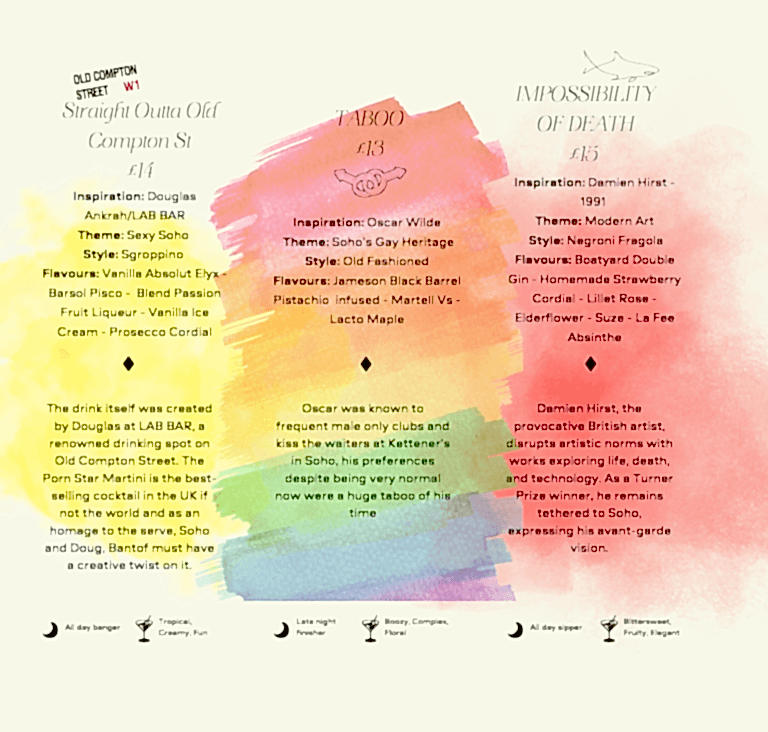 OLD COMPTON
STREET W1
Straight Outta Old
Compton St
£14
Inspiration: Douglas
Ankrah/LAB BAR
Theme: Sexy Soho
Style: Sgroppino
Flavours: Vanilla Absolut Elyx -
Barsol Pisco - Blend Passion
Fruit Liqueur - Vanilla Ice
Cream - Prosecco Cordial
The drink itself was created
by Douglas at LAB BAR, a
renowned drinking spot on
Old Compton Street. The
Porn Star Martini is the best-
selling cocktail in the UK if
not the world and as an
homage to the serve, Soho
and Doug, Bantof must have
a creative twist on it.
All day banger
Tropical,
Creamy, Fun
TABOO
£13
Inspiration: Oscar Wilde
Theme: Soho's Gay Heritage
Style: Old Fashioned
Flavours: Jameson Black Barrel
Pistachio infused - Martell Vs -
Lacto Maple
Oscar was known to
frequent male only clubs and
kiss the waiters at Kettener's
in Soho, his preferences
despite being very normal
now were a huge taboo of his
time
Late night
finisher
Boozy, Complex,
Floral
IMPOSSIBILITY
OF DEATH
£15
Inspiration: Damien Hirst -
1991
Theme: Modern Art
Style: Negroni Fragola
Flavours: Boatyard Double
Gin - Homemade Strawberry
Cordial - Lillet Rose -
Elderflower - Suze - La Fee
Absinthe
Damien Hirst, the
provocative British artist,
disrupts artistic norms with
works exploring life, death,
and technology. As a Turner
Prize winner, he remains
tethered to Soho,
expressing his avant-garde
vision.
All day sipper
Bittersweet,
Fruity, Elegant